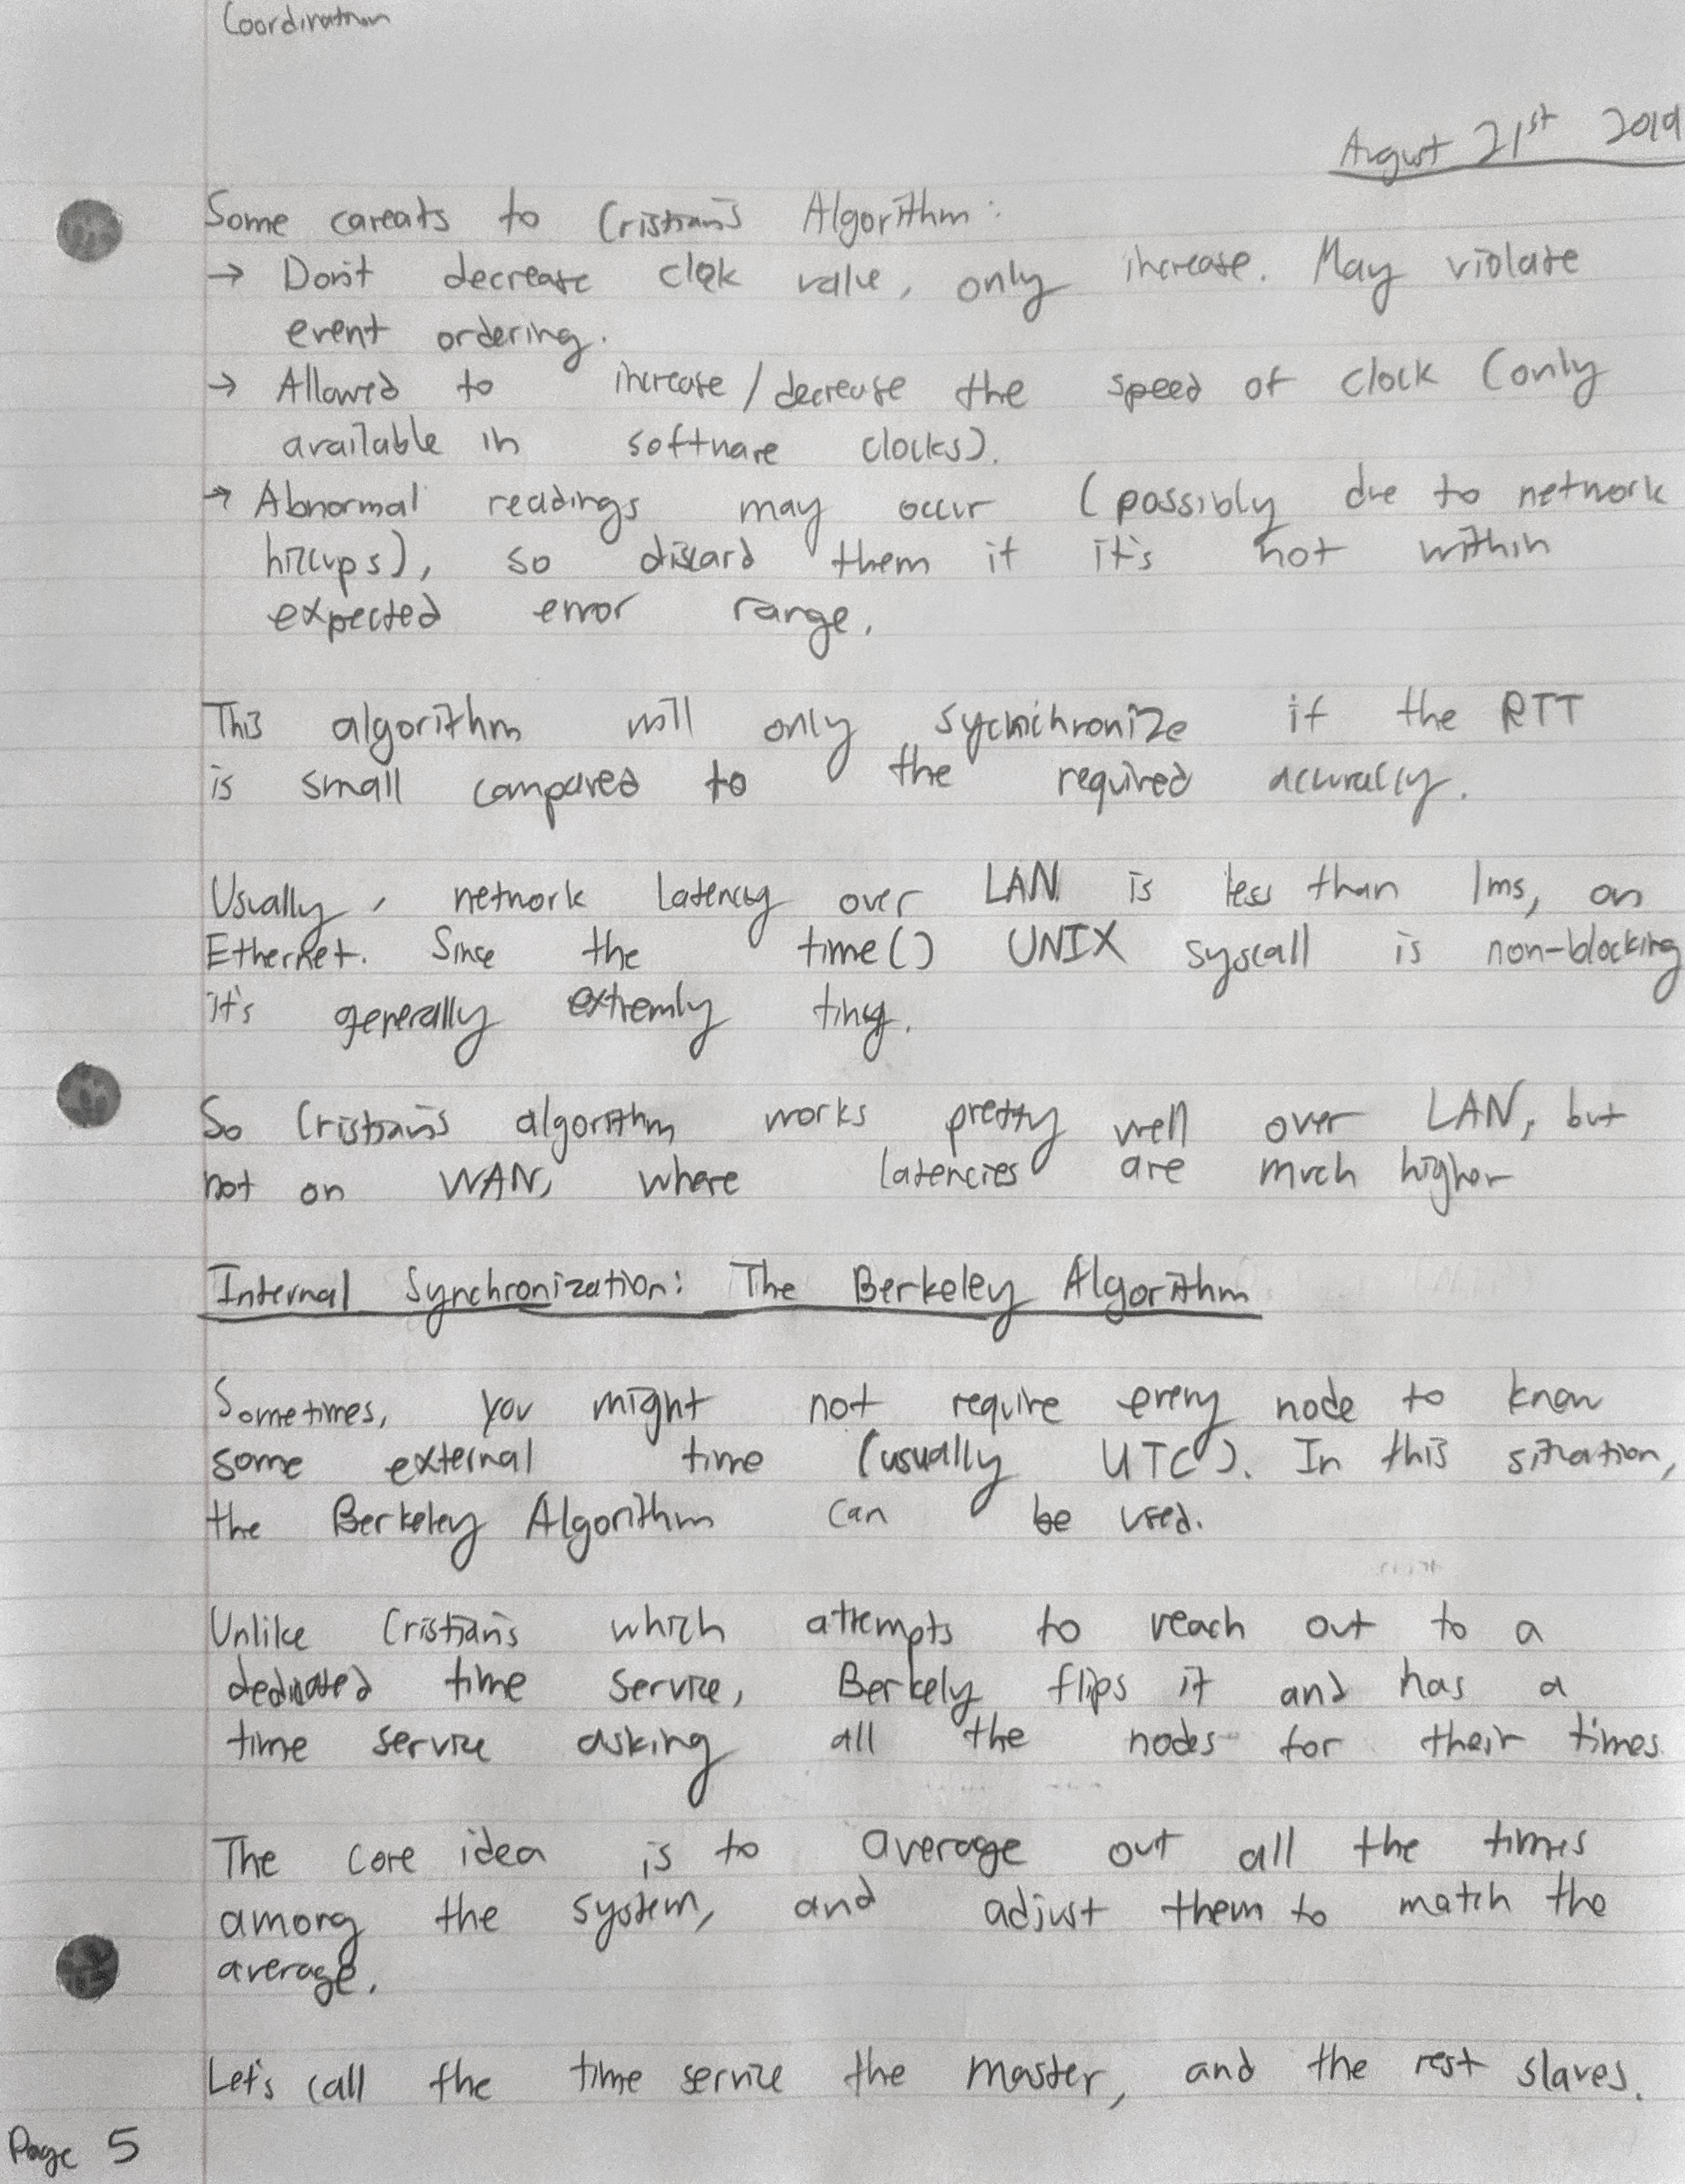 Coordination
August 21st 2019
Some caveats to Cristian's Algorithm:
→ Don't decrease clock value, only increase. May violate
event ordering.
→ Allowed to increase/decrease the speed of clock (only
available in software clocks).
→ Abnormal readings may occur (possibly due to network
hiccups), so discard them if it's not within
expected error range.
This algorithm will only sychichronize if the RTT
is small compared to the required accuracy.
Usually, network latency over LAN is less than 1ms, on
Ethernet. Since the time() UNIX syscall is non-blocking
it's generally extremly tiny.
So Cristian's algorithm works pretty well over LAN, but
not on WAN, where latencies are much higher
Internal Synchronization: The Berkeley Algorithm
Sometimes, you might not require every node to know
some external time (usually UTC). In this situation,
the Berkeley Algorithm can be used.
Unlike Cristian's which attempts to reach out to a
dedicated time service, Berkely flips it and has a
time service asking all the nodes for their times.
The core idea is to average out all the times
among the system, and adjust them to match the
average.
Let's call the time service the master, and the rest slaves.
Page 5